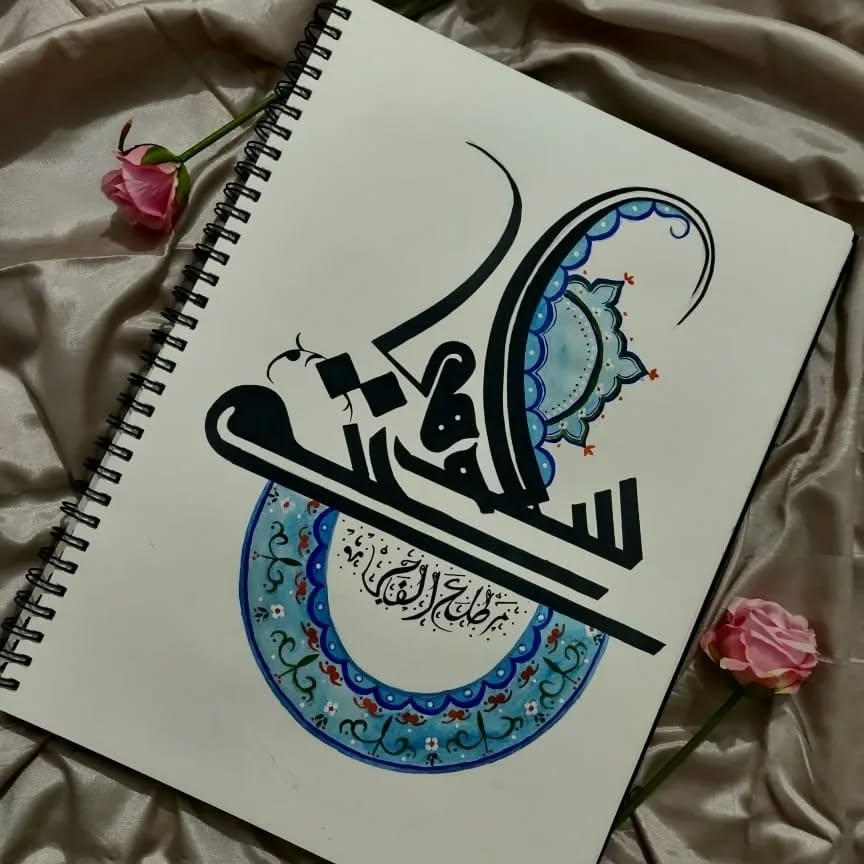 سلم هي حتى
مطلع الفجر